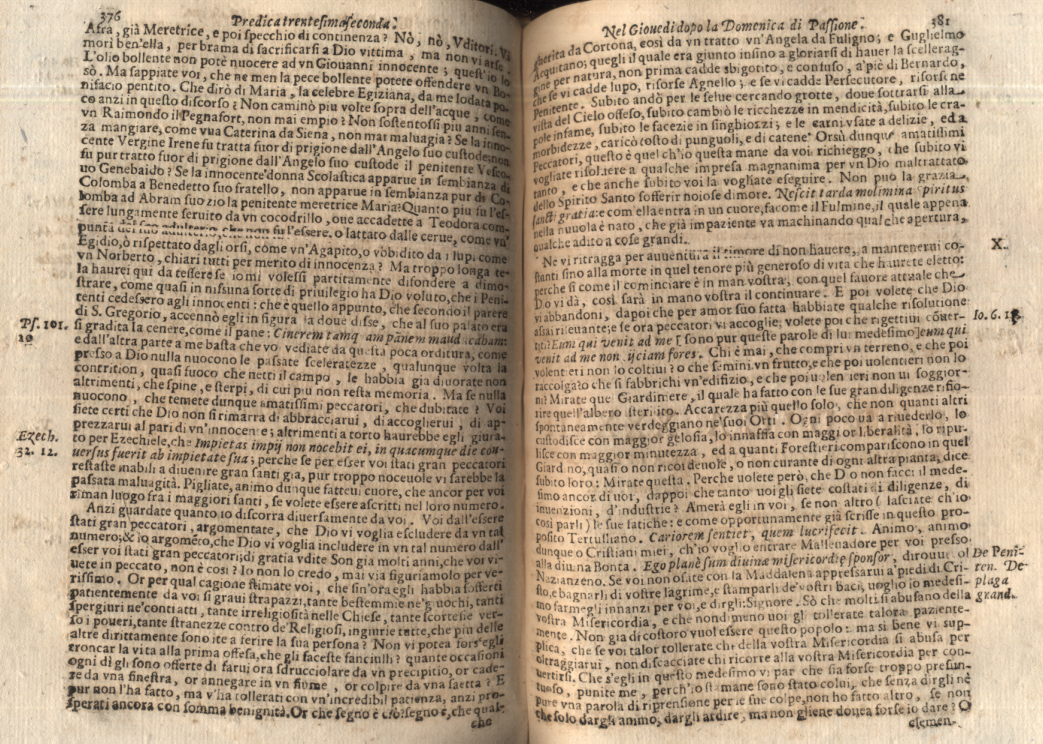 376
Predica trentesimoseconda.
Afra, già Meretrice, e poi specchio di continenza? Nò, nò, Vditori. Vi
morì ben'ella, per brama di sacrificarsi a Dio vittima, ma non vi arse.
L'olio bollente non potè nuocere ad vn Giouanni innocente; quest'io lo
sò. Ma sappiate voi, che ne men la pece bollente potete offendere vn Bo-
nifacio pentito. Che dirò di Maria, la celebre Egiziana, da me lodata po-
co anzi in questo discorso? Non caminò più volte sopra dell'acque, come
vn Raimondo il Pegnafort, non mai empio? Non sostentossi piu anni sen-
za mangiare, come vua Caterina da Siena, non mai maluagia? Se la inno-
cente Vergine Irene fu tratta fuor di prigione dall'Angelo suo custode, non
fu pur tratto fuor di prigione dall'Angelo suo custode il penitente Vesco-
uo Genebaldo? Se la innocente donna Scolastica apparue in sembianza di
Colomba a Benedetto suo fratello, non apparue in sembianza pur di Co-
lomba ad Abram suo zio la penitente meretrice Maria? Quanto piu fu l'es-
sere lungamente seruito da vn cocodrillo, oue accadette a Teodora com-
punta del suo adulterio, che non fu l'essere, o lattato dalle cerue, come vn'
Egidio, o rispettato dagli orsi, come vn'Agapito, o vbbidito da i lupi come
vn Norberto, chiari tutti per merito di innocenza? Ma troppo longa te-
la haurei qui da tessere se io mi volessi partitamente disondere a dimo-
strare, come quasi in nissuna sorte di priuilegio ha Dio voluto, che i Peni-
tenti cedessero agli innocenti: che è quello appunto, che secondo il parere
di S. Gregorio, accennò egli in figura la doue disse, che al suo palato era
Ps. 101.
10
si gradita la cenere, come il pane: Cinerem tamquam panem manducabam:
e dall'altra parte a me basta che voi vediate da questa poca orditura, come
presso a Dio nulla nuocono le passate sceleratezze, qualunque volta la
contrition, quasi fuoco che netti il campo, le habbia già diuorate non
altrimenti, che spine, e sterpi, di cui più non resta memoria. Ma se nulla
nuocono, che temete dunque amatissimi peccatori, che dubitate? Voi
siete certi che Dio non si rimarrà di abbracciarui, di accoglierui, di ap-
prezzarui al pari di vn'innocente; altrimenti a torto haurebbe egli giura-
Ezech.
32. 12.
to per Ezechiele, che Impietas impij non nocebit ei, in quacumque die con-
uersus fuerit ab impietate sua; perche se per esser voi stati gran peccatori
restaste inabili a diuenire gran santi gia, pur troppo noceuole vi sarebbe la
passata maluagità. Pigliate, animo dunque fatteui cuore, che ancor per voi
riman luogo fra i maggiori santi, se volete essere ascritti nel loro numero.
Anzi guardate quanto io discorra diuersamente da voi. Voi dall'essere
stati gran peccatori, argomentate, che Dio vi voglia escludere da vn tal
numero; & io argometo, che Dio vi voglia includere in vn tal numero dall'
esser voi stati gran peccatori; di gratia vdite Son gia molti anni, che voi vi-
uete in peccato, non è così? Io non lo credo, mai via figuriamolo per ve-
rissimo. Or per qual cagione stimate voi, che sin'ora egli habbia sofferti
patientemente da voi si graui strapazzi, tante bestemmie ne'giuochi, tanti
spergiuri ne'contratti, tante irreligiosità nelle Chiese, tante scortesie ver-
so i poueri, tante stranezze contro de'Religiosi, ingiurie tutte, che più delle
altre dirittamente sono ite a ferire la sua persona? Non vi potea fors'egli
troncar la vita alla prima offesa, che gli faceste fanciulli? quante occasioni
ogni dì gli sono offerte di farui ora sdrucciolare da vn precipitio, or cade-
re da vna finestra, or annegare in vn fiume, or colpire da vna saetta? E
pur non l'ha fatto, ma v'ha tollerati con vn'incredibil patienza, anzi pro-
sperati ancora con somma benignità. Or che segno è ciò? segno è, che qual-
che
Nel Giouedì dopo la Domenica di Passione.
381
gherita da Cortona, così da vn tratto vn'Angela da Fuligno; e Guglielmo
Acquitano; quegli il quale era giunto insino a gloriarsi di hauer la scellerag-
gine per natura, non prima cadde sbigotto, e confuso, a'piè di Bernardo,
che se vi cadde lupo, risorse Agnello; e se vi cadde Persecutore, risorse ne
Penitente. Subito andò per le selue cercando grotte, doue sottrarsi alla
vista del Cielo offeso, subito cambiò le ricchezze in mendicità, subito le cra-
pole infame, subito le facezie in singhiozzi; e le carni vsate a delizie, ed a
morbidezze, caricò tosto di punguoli, e di catene. Orsù dunque amatissimi
Peccatori, questo è quel ch'io questa mane da voi richieggo, che subito vi
vogliate risoluere a qualche impresa magnanima per vn Dio maltrattato
tanto, e che anche subito voi la vogliate eseguire. Non può la grazia
dello Spirito Santo sofferir noiose dimore. Nescit tarda molimina Spiritus
sancti gratia: e com ella entra in un cuore, fa come il Fulmine, il quale appena
nella nuuola è nato, che già impaziente va machinando qualche apertura,
qualche adito a cose grandi.
X.
Ne vi ritragga per auuentura il timore di non hauere, a mantenerui co-
stanti sino alla morte in quel tenore più generoso di vita che haurete eletto:
perche sì come il cominciare è in man vostra, con quel fauore attuale che
Dio vi dà, così sarà in mano vostra il continuare. E poi volete che Dio
vi abbandoni, dapoi che per amor suo fatta habbiate qualche risolutione
assai rileuante; e se ora peccatori vi accoglie, volete poi che rigettiui conuer-
Io. 6. 18.
titi? Eum qui venit ad me [ sono pur queste parole di lui medesimo ] eum qui
venit ad me non eijciam foras. Chi è mai, che compri vn terreno, e che poi
volentieri non lo coltiui? o che semini vn frutto, e che poi uolentieri non lo
raccolga? o che si fabbrichi vn'edifizio, e che poi uolentieri non ui soggior-
ni? Mirate que' Giardiniere, il quale ha fatto con le sue gran diligenze rifio-
rire quell'albero sterilito. Accarezza più quello solo, che non quanti altri
spontaneamente verdeggiano ne'suoi Orti. Ogni poco ua a riuederlo, lo
custodisce con maggior gelosia, lo innaffia con maggior liberalità, lo ripu-
lisce con maggior minutezza, ed a quanti Forestieri compariscono in quel
Giardino, quasi o non ricordeuole, o non curante di ogni altra pianta, dice
subito loro: Mirate questa. Perche uolete però, che Dio non facci il mede-
simo ancor di uoi, dappoi che tanto uoi gli siete costati di diligenze, di
inuenzioni, d'industrie? Amerà egli in voi, se non altro ( lasciate ch'io
così parli ) le sue fatiche: e come opportunamente già scrisse in questo pro-
posito Tertulliano. Cariorem sentier, quem lucrifecit. Animo, animo
dunque o Cristiani miei, ch'io voglio entrare Malleuadore per voi presso
De Peni-
ten. De
plaga
grand.
alla diuina Bonta. Ego planè sum diuinæ misericordiæ sponsor, dirouui col
Nazianzeno. Se voi non osate con la Maddalena appressarui a'piedi di Cri-
sto, e bagnarli di vostre lagrime, e stamparli de'vostri baci, uoglio io medesi-
mo farmegli innanzi per voi, e dirgli: Signore. Sò che molti si abusano della
vostra Misericordia, e che nondimeno uoi gli tollerate talora paziente-
mente. Non già di costoro vuol essere questo popolo: ma sì bene vi sup-
plica, che se voi talor tollerate chi della vostra Misericordia si abusa per
oltraggiarui, non discacciate chi ricorre alla vostra Misericordia per con-
uertirsi. Che s'egli in questo medesimo vi par che sia forse troppo presun-
tuoso, punite me, perch'io stamane sono stato colui, che senza dirgli nè
pure vna parola di riprensione per le sue colpe, non ho fatto altro, se non
che solo dargli animo, dargli ardire, ma non gliene douea forse io dare? O
clemen-